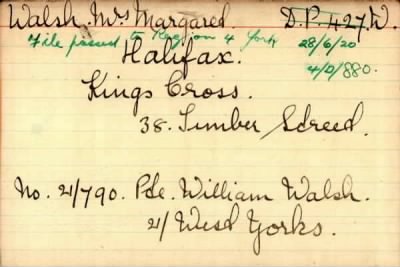 Walsh. Mrs Margaret D.P. 427.W.
File passed to Region 4 York 28/6/20
4/D/880.
Halifax.
Kings Cross.
38. Timber Street.
No. 21/790. Pte. William Walsh.
21/West Yorks.